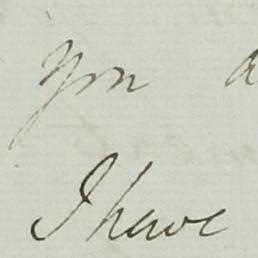 You a
I have